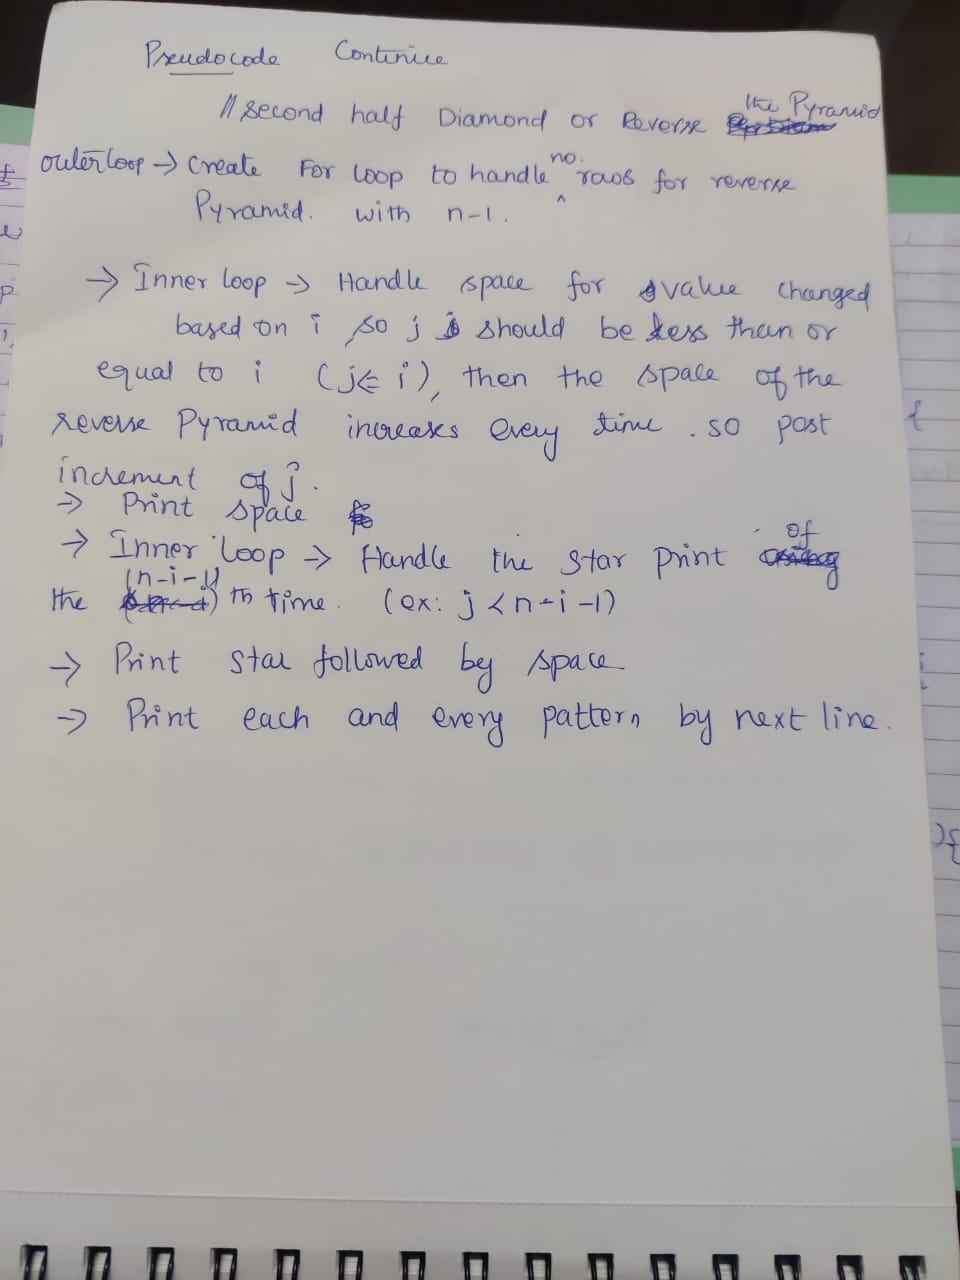 Pseudocode Continue
// second half Diamond or Reverse the Pyramid
outerloop → Create For loop to handle no. raos for reverse
Pyramid. with n-1.
→ Inner loop → Handle space for value changed
based on i so j should be less than or
equal to i (j<= i), then the space of the
reverse Pyramid increases every time . so post
increment of j.
→ Print space
→ Inner loop → Handle the star print of
the (n-i-1) th time. (ex: j < n-i-1)
→ Print star followed by space
→ Print each and every pattern by next line.